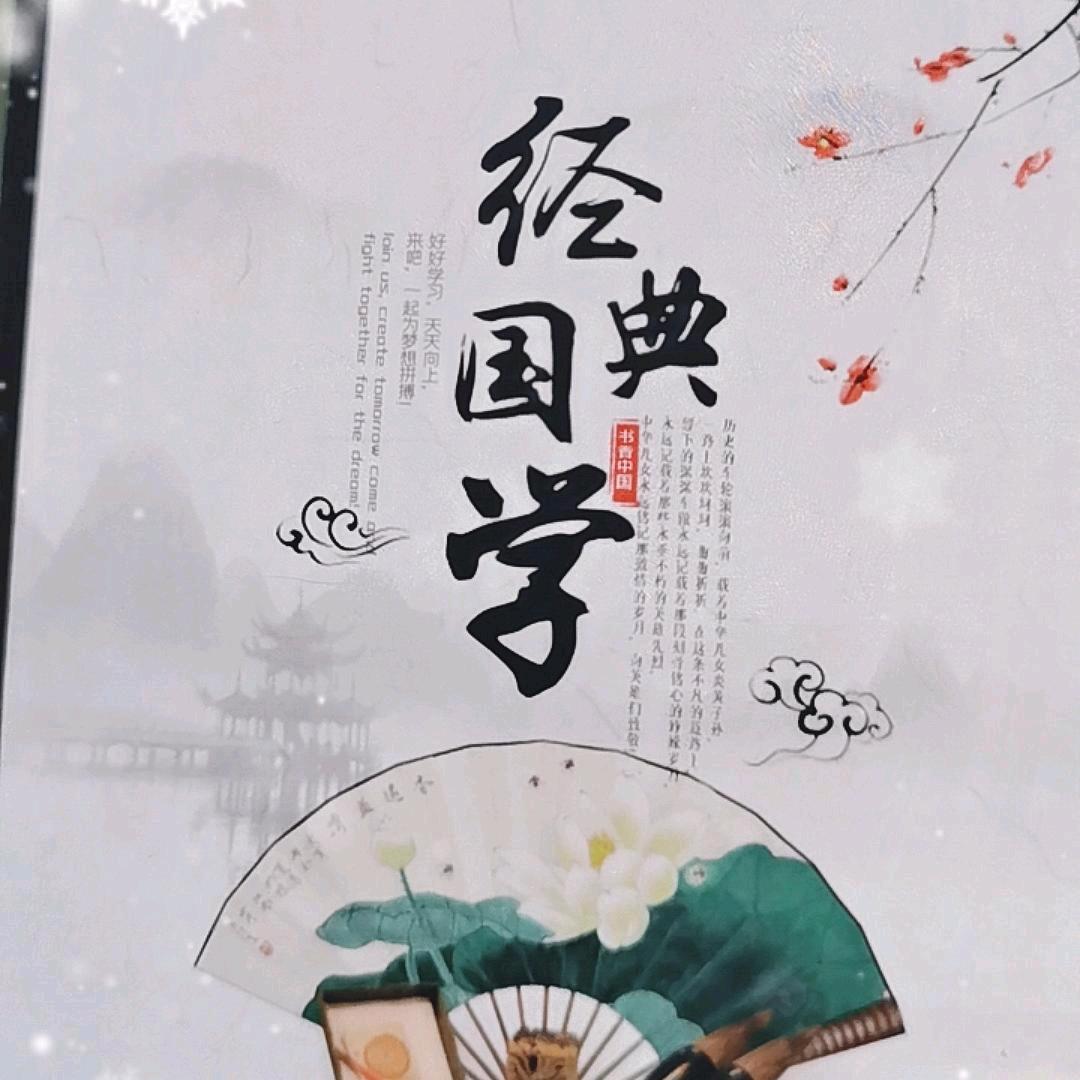 经典
国学
书香中国
好好学习，天天向上，
来吧，一起为梦想拼搏！
Join us, create tomorrow come and
fight together for the dream!
历史的车轮滚滚向前，载着中华儿女炎黄子孙，
一路上坎坎坷坷，曲曲折折，在这条不凡的道路上
留下的深深车辙永远记载着那段刻骨铭心的峥嵘岁月，
永远记载着那些永垂不朽的英雄先烈，
中华儿女永远铭记那激情的岁月，向英雄们致敬！